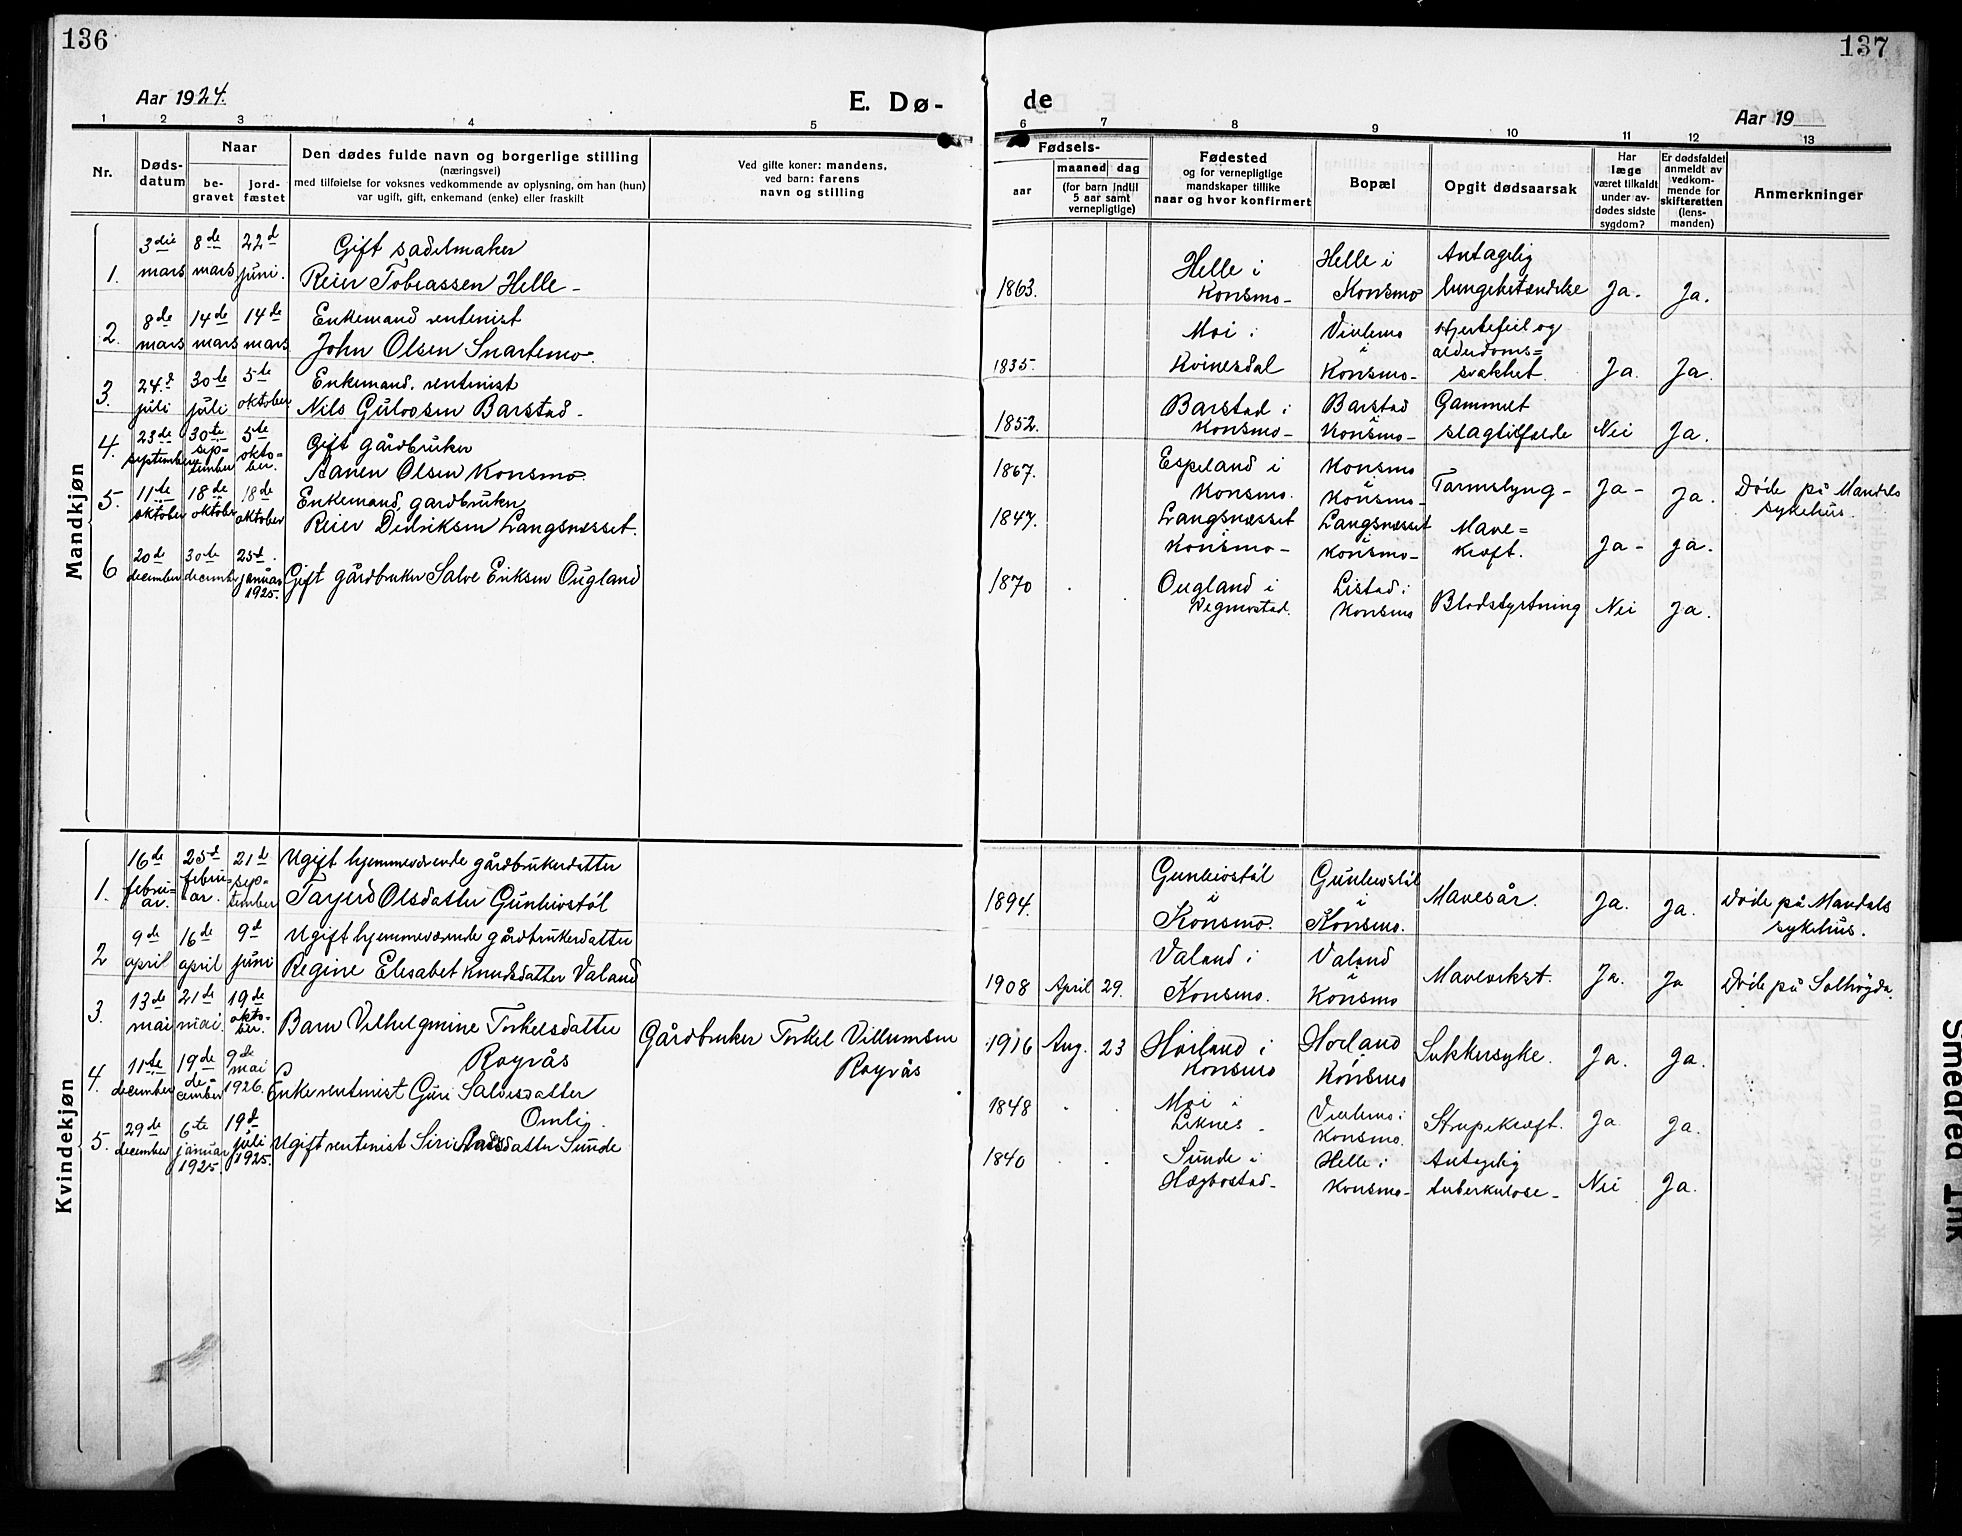 136
137
Aar 1924.
E. Dø-
de
Aar 19
1 2 3 4 5
6 7 8 9 10 11 12 13
Nr.
Døds-
datum
Naar
be-
gravet
jord-
fæstet
Den dødes fulde navn og borgerlige stilling
(næringsvei)
med tilføielse for voksnes vedkommende av oplysning, om han (hun)
var ugift, gift, enkemand (enke) eller fraskilt
Ved gifte koner: mandens,
ved barn: farens
navn og stilling
Fødsels-
aar
maaned dag
(for barn indtil
5 aar samt
vernepligtige)
Fødested
og for vernepligtige
mandskaper tillike
naar og hvor konfirmert
Bopæl
Opgit dødsaarsak
Har
læge
været tilkaldt
under av-
dødes sidste
sygdom?
Er dødsfaldet
anmeldt av
vedkom-
mende for
skifteretten
(lens-
manden)
Anmerkninger
Mandkjøn
1.
3die
mars
8de
mars
22d
juni.
Gift sadelmaker
Reier Tobiassen Helle-
1863.
Helle i
Konsmo-
Helle i
Konsmo
Antagelig
lungebetændelse
Ja.
Ja.
2.
8de
mars
14de
mars
14de
mars
Enkemand rentenist
John Olsen Snartemo.
1835.
Moi i
Kvinesdal
Vivlemo
i
Konsmo-
Hjertefeil og
alderdoms=
svakhet.
Ja.
Ja.
3.
24.d
juli
30te
juli
5te
oktober
Enkemand. rentenist
Nils Gulovsen Barstad-
1852.
Barstad i
Konsmo-
Barstad
i
Konsmo-
Gammelt
slagtilfælde
Nei
Ja.
4.
23de
september
30te
sep=
tember
5te
okto=
ber.
Gift gårdbruker
Aanen Olsen Konsmo.
1867.
Espeland i
Konsmo.
Konsmo
i
Konsmo-
Tarmslyng-
Ja-
Ja.
Døde på Mandals
sykehus.
5.
11te
oktober
18de
oktober
18de
oktober
Enkemand, gardbruker
Reier Didriksen Langsnæsset.
1847.
Langsnæsset
i
Konsmo-
Langsnæsset
i
Konsmo-
Mave=
kræft.
Ja-
Ja.
6
20de
december
30te
december
25d.
januar
1925.
Gift gårdbruker Salve Eriksen Øugland
1870
Øugland i
Vegmostad.
Listad i
Konsmo
Blodstyrtning
Nei
Ja.
Kvindekjøn
1.
16de
febru=
ar.
25d
febru=
ar.
21de
sep=
tember
Ugift hjemmeværende gårdbrukerdatter
Tarjerd Olsdatter Gunleivstøl
1894.
Gunleivstøl
i
Konsmo.
Gunleivstøl
i
Konsmo.
Mavesår.
Ja.
Ja.
Døde på Mandals
sykehus.
2
9de
april
16de
april
9d
juni
Ugift hjemmeværende gårdbrukerdatter
Regine Elisabet Knudsdatter Valand
1908
April
29.
Valand i
Konsmo.
Valand
i
Konsmo
Mavevekst.
Ja.
Ja
Døde på Solhøgda.
3.
13de
mai
21de
mai.
19de
okto-
ber.
Barn Vilhelgmine Torkelsdatter
Røyrås
Gårdbruker Torkel Villumsen
Røyrås
1916
Aug.
23
Hørland i
Konsmo
Hørland
i
Konsmo
Sukkersyke.
Ja.
Ja.
4.
11te
december
19de
de=
cember
9de
mai
1926.
Enke rentenist Guri Salvesdatter
Omli.
1848
Moi i
Liknes-
Vivlemo i
Konsmo.
Strupekræft.
Ja
Ja.
5.
29de
december
6te
januar
1925.
19d
juli
1925.
Ugift rentenist Siri datter Sunde
1840
Sunde i
Hægbostad-
Helle i
Konsmo-
Antagelig
tuberkulose-
Nei
Ja.
Smeared Ink